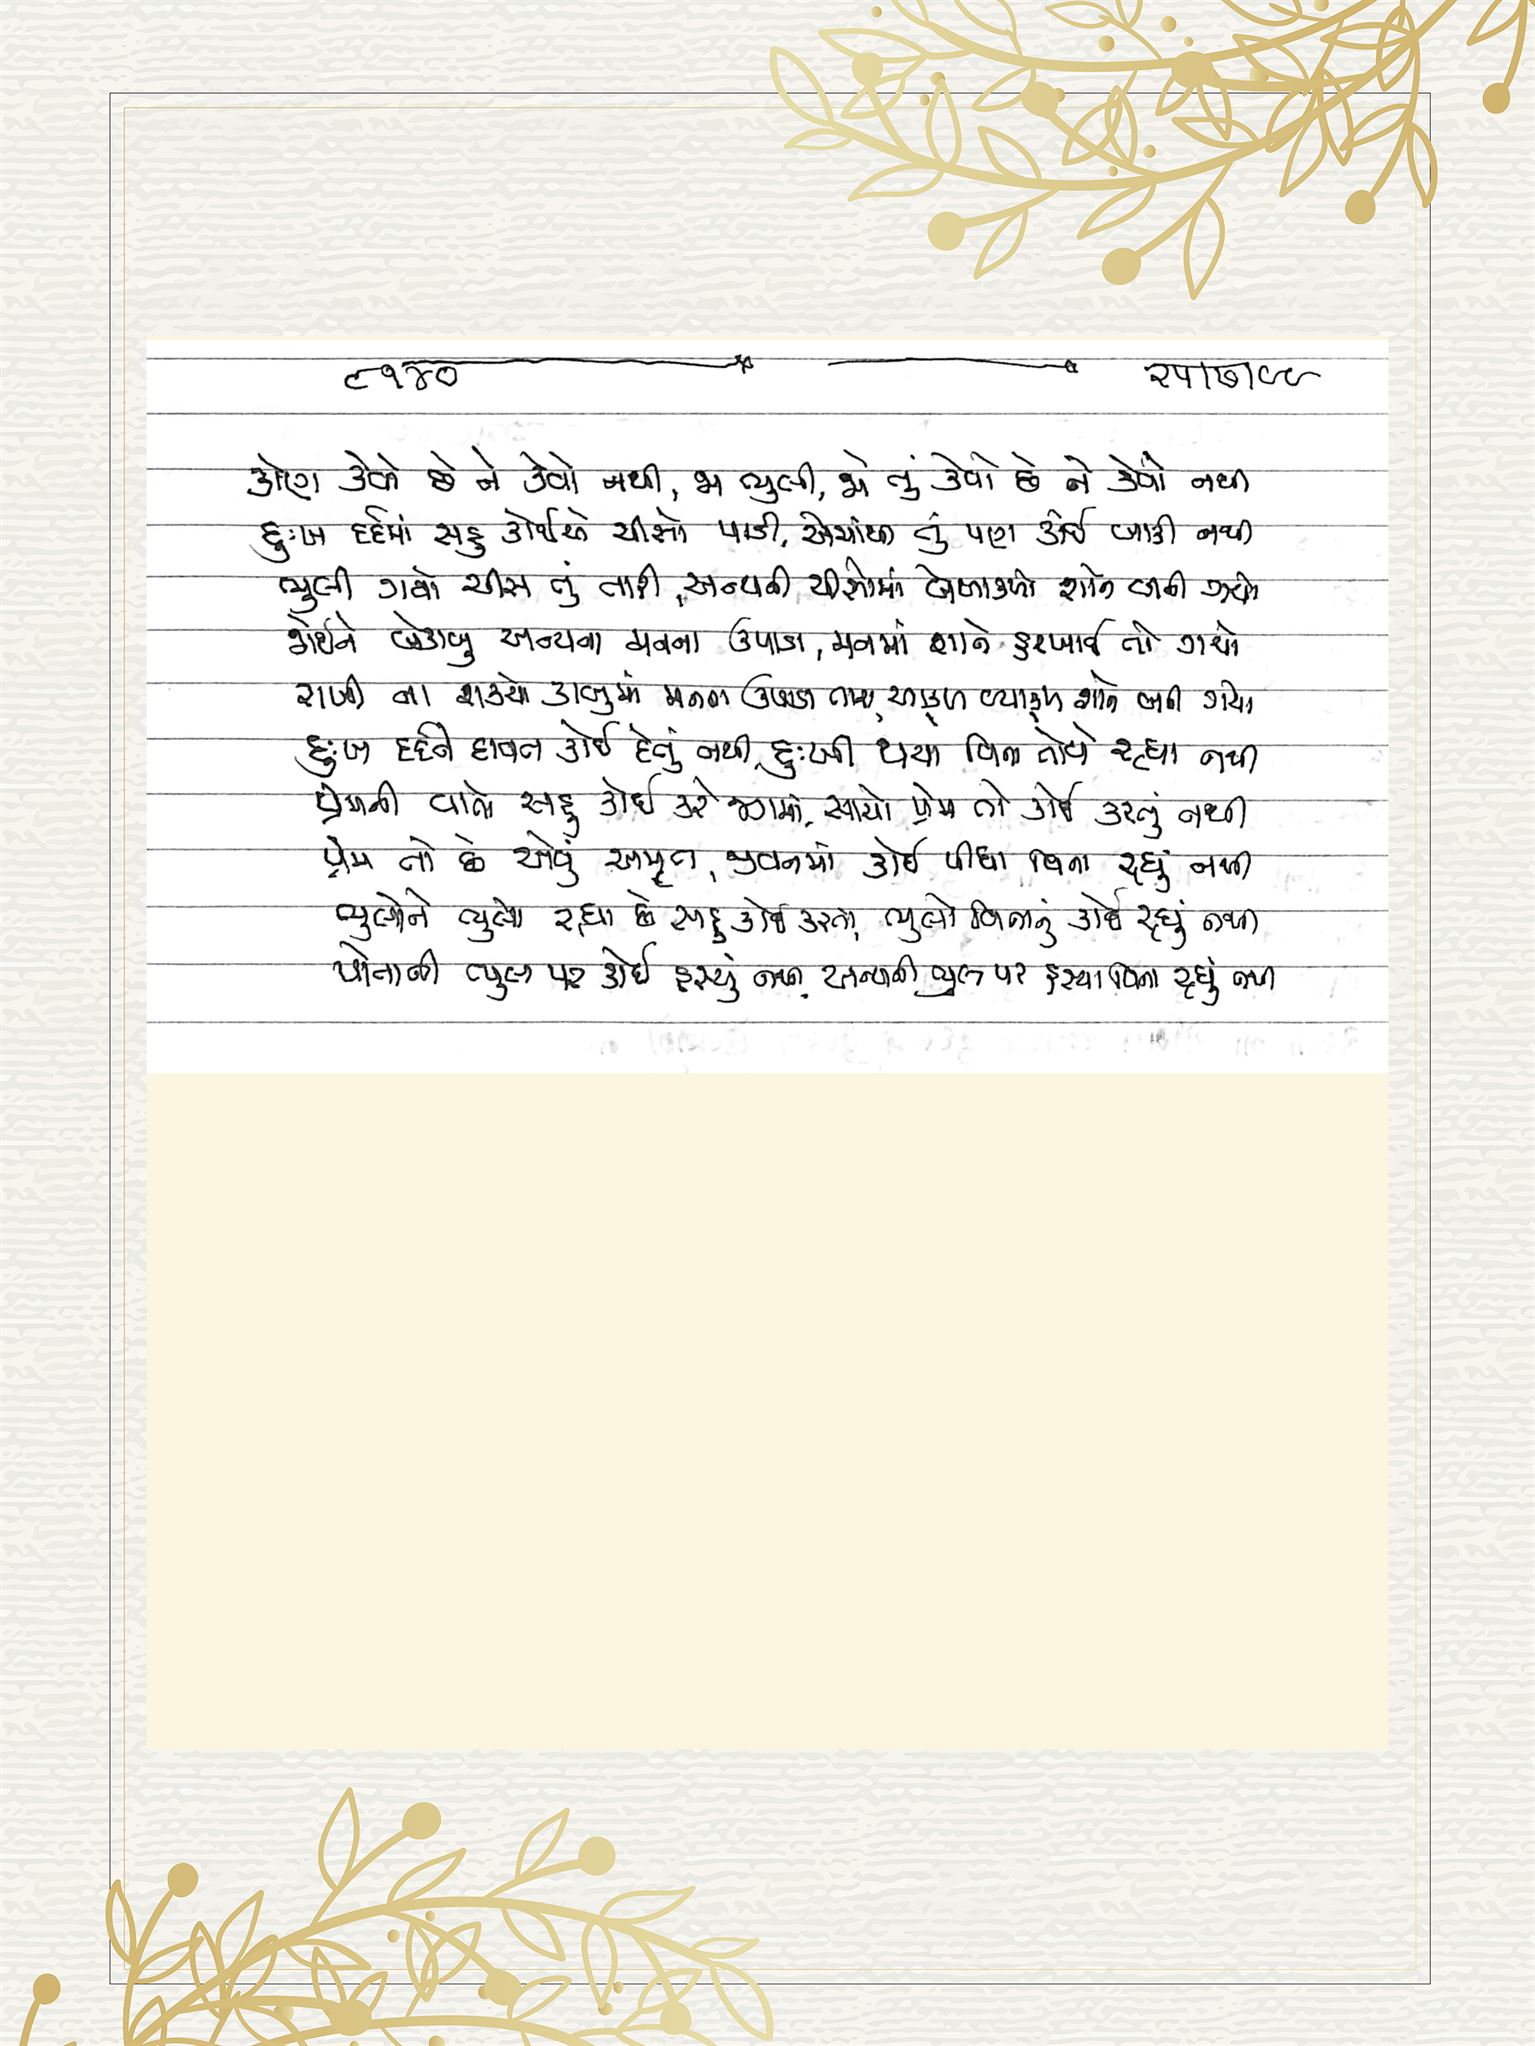 ૯૧૪૦ ૨૫/૭/૯૯
કોણ કેવો છે ને કેવો નથી, જા ભુલી, જો તું કેવો છે ને કેવો નથી
દુઃખ દર્દમાં સહુ કોઈએ ચીસો પાડી, એમાંથી તું પણ કાંઈ બાકી નથી
ભુલી ગયો ચીસ તું તારી, અન્યની ચીસોમાં બેબાકળો શાને બની ગયો
જોઈને બેકાબુ અન્યના મનના ઉપાડા, મનમાં શાને હરખાઈ તો ગયો
રાખી ના શક્યો કાબુમાં મનના ઉપાડા તારા, આકુળ વ્યાકુળ શાને બની ગયો
દુઃખ દર્દને દાવત કોઈ દેતું નથી, દુઃખી થયા વિના તોયે રહ્યા નથી
પ્રેમની વાતો સહુ કોઈ કરે જગમાં, સાચો પ્રેમ તો કોઈ કરતું નથી
પ્રેમ તો છે એવું અમૃત, જીવનમાં કોઈ પીધા વિના રહ્યું નથી
ભુલોને ભુલો રહ્યા છે સહુ કોઈ કરતા, ભુલો વિનાનું કોઈ રહ્યું નથી
પોતાની ભુલ પર કોઈ હસ્યું નથી, અન્યની ભુલ પર હસ્યા વિના રહ્યું નથી